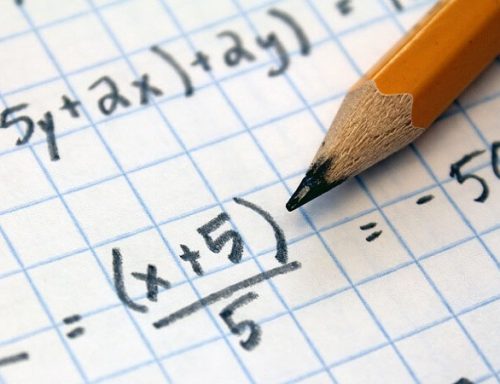 5y+2x)+2y) =
= (x+5)/5 = -50